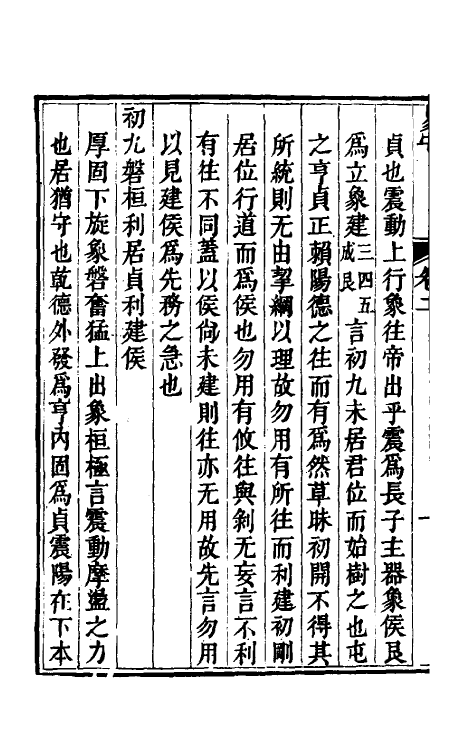 貞也震動上行象往帝出乎震爲長子主器象侯艮
爲立象建三四五成艮言初九未居君位而始樹之也屯
之亨貞正賴陽德之往而有爲然草昧初開不得其
所統則无由挈綱以理故勿用有所往而利建初剛
居位行道而爲侯也勿用有攸往與剝无妄言不利
有往不同蓋以侯尙未建則往亦无用故先言勿用
以見建侯爲先務之急也
初九磐桓利居貞利建侯
厚固下旋象磐奮猛上出象桓極言震動摩盪之力
也居猶守也乾德外發爲亨內固爲貞震陽在下本
卷二
一